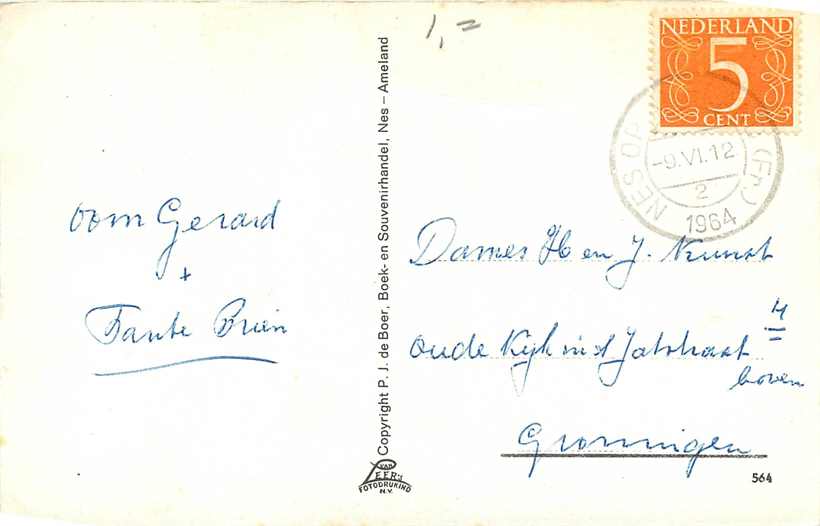 1,=
NEDERLAND
5
CENT
NES OP (Fr.)
-9.VI.12
2
1964
oom Gerard
+
Tante Prien
Copyright P. J. de Boer, Boek- en Souvenirhandel, Nes – Ameland
VAN LEER'S
FOTODRUKIND
N.V.
Dames H en J. Kunst
oude Kijk in 't Jatstraat 4
boven
Groningen
564